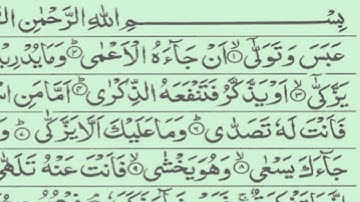 بِسْمِ اللّٰهِ الرَّحْمٰنِ
عَبَسَ وَتَوَلّٰىۤ ۙ﴿۱﴾ اَنْ جَآءَهُ الْاَعْمٰى ؕ﴿۲﴾ وَمَا يُدْرِيْكَ
يَزَّكّٰىۤ ۙ﴿۳﴾ اَوْ يَذَّكَّرُ فَتَنْفَعَهُ الذِّكْرٰى ؕ﴿۴﴾ اَمَّا مَنِ
فَاَنْتَ لَهٗ تَصَدّٰى ؕ﴿۶﴾ وَمَا عَلَيْكَ اَلَّا يَزَّكّٰى ؕ﴿۷﴾
جَآءَكَ يَسْعٰى ۙ﴿۸﴾ وَهُوَ يَخْشٰى ۙ﴿۹﴾ فَاَنْتَ عَنْهُ تَلَهّٰى